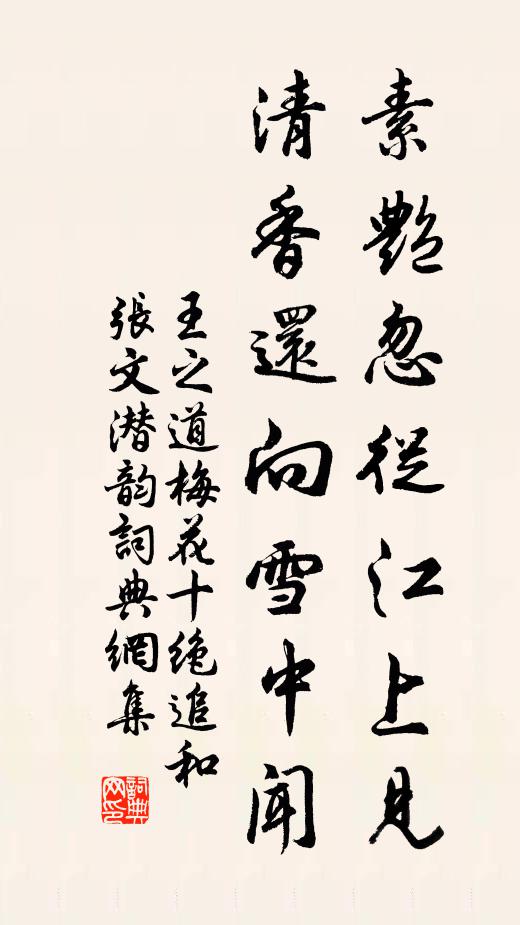 素艷忽從江上見
清香還向雪中聞
王之道梅花十绝追和
張文潜韵詞典網集
詞典
网印